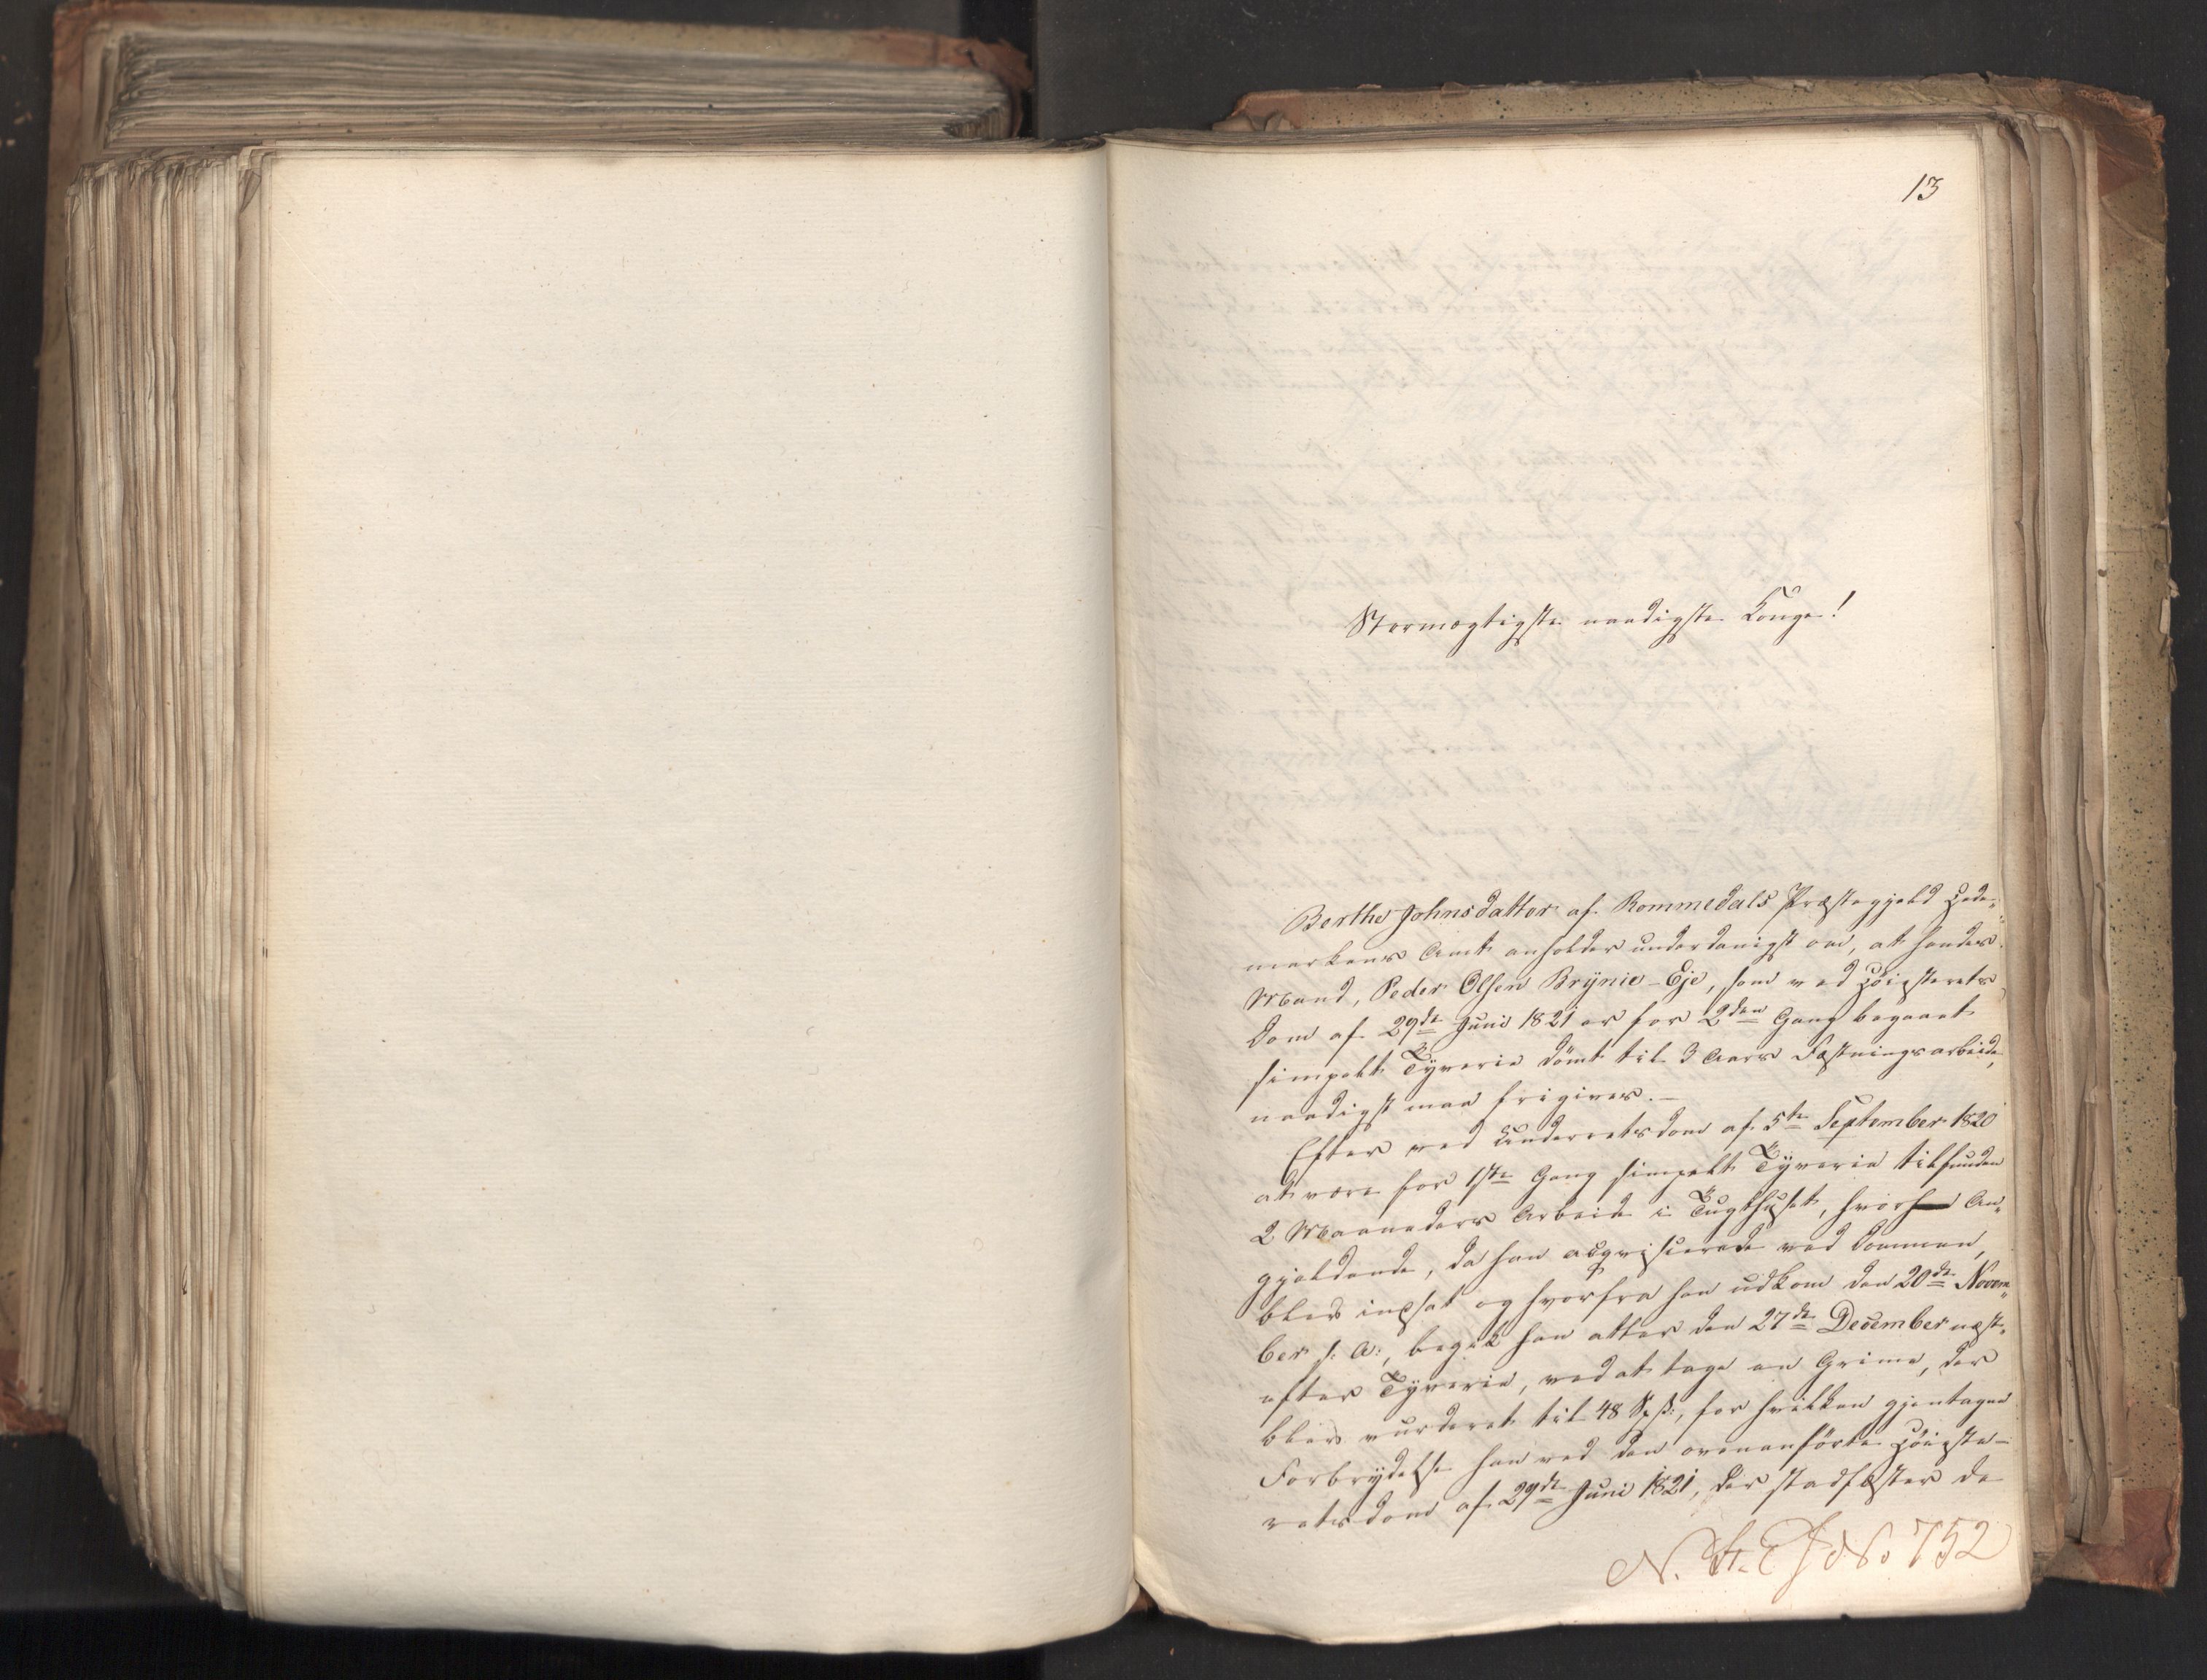 13
Stormægtigste naadigste Konge!
Berthe Johnsdatter af Rommedals Præstegjeld Hede„
markens Amt anholder underdanigst om, at hendes
Mand, Peder Olsen Brynie-Eje, som ved Høiesterets
Dom af 29de Juni 1821 er for 2den Gang begaaet
simpelt Tyverie dömt til 3 Aars Fæstningsarbeide,
naadigst maa frigives.-
Efter ved Underretsdom af 5te September 1820
at være for 1ste Gang simpelt Tyverie tilfunden
2 Maaneders Arbeide i Tugthuset, hvor An„
gjeldende, da han acqviscerede ved Dommen,
blev indsat og hvorfra han udkom den 20de Novem„
ber s: A:, begik han atter den 27de December næst„
efter Tyverie, ved at tage en Grime, der
blev vurderet til 48 Sp ß:, for hvilken gjentagen
Forbrydelse han ved den ovenanförte Höieste-
retsdom af 29de Juni 1821, der stadfæster de
N. St. E J No 752